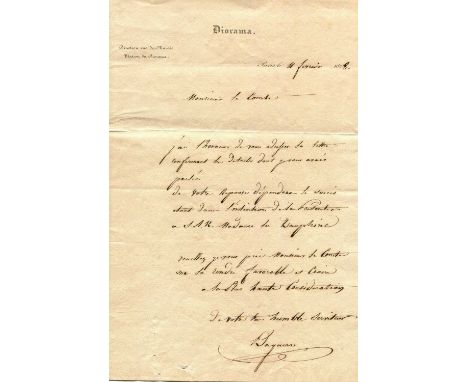 Diorama.
Direction rue des Marais
Paris le 11 février
Monsieur le Comte
j'ai l'honneur de vous adresser la lettre
contenant les details dont je vous avais
parlée
de votre reponse dépendra le succès
étant dans l'intention de la présenter
a S.A.R. Madame la Dauphine
veuillez je vous prie Monsieur le Comte
me la rendre favorable et croire
a la plus haute Consideration
de votre tres humble serviteur
Daguerre